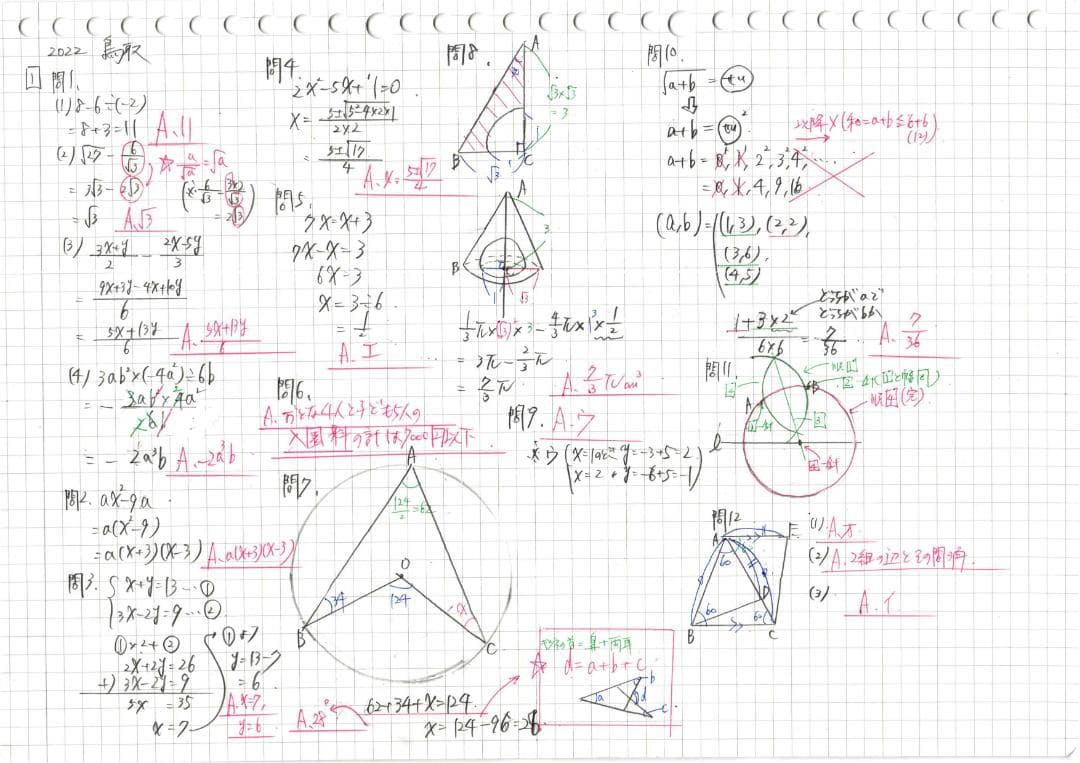 2022 鳥取
1 問1.
(1) 8-6÷(-2)
= 8+3=11 A. 11
(2) √27 - 6/√3 ☆ a/√a = √a
= 3√3 - 2√3 (× 6/√3 = 3×2/√3 = 2√3)
= √3 A. √3
(3) 3x+y/2 - 2x-5y/3
= 9x+3y-4x+10y/6
= 5x+13y/6 A. 5x+13y/6
(4) 3ab²×(-4a²)÷6b
= - 3ab²×4a²/6b
= -2a³b A. -2a³b
問2. ax²-9a
= a(x²-9)
= a(x+3)(x-3) A. a(x+3)(x-3)
問3. { x+y=13 … ①
3x-2y=9 … ②
①×2+②
2x+2y=26
+) 3x-2y=9
5x =35
x=7
①より
y=13-7
=6
A. x=7,
y=6
問4.
2x²-5x+1=0
x= 5±√5²-4×2×1/2×2
= 5±√17/4
A. x= 5±√17/4
問5.
7x=x+3
7x-x=3
6x=3
x=3÷6
= 1/2
A. エ
問6.
A. おとな4人と子ども5人の
入園料の計は7000円以下
問7.
A
124/2=62
O
34
124
x
B
C
62+34+x=124
x=124-96=28
A. 28°
☆ d=a+b+c
a
b
d
c
問8.
A
√3×√3
=3
B
√3
1
C
A
3
B
1
√3
1/3π×(√3)²×3 - 4/3π×1³×1/2
= 3π - 2/3π
= 7/3π
A. 7/3π cm³
問9. A. ウ
※ウ (x=1のとき y=-3+5=2
x=2 〃 y=-6+5=-1)
問10.
√a+b =
⇩
a+b =
2
以降×(和=a+b≦6+6)
(12)
a+b = 0², 1², 2², 3², 4², ...
= 0, 1, 4, 9, 16
(a,b)=(1,3), (2,2),
(3,6),
(4,5)
どっちがaで
どっちがbか
1+3×2/6×6 = 7/36
A. 7/36
問11.
A
B
l
問12
A
E
60
60
60
D
B
C
(1) A. オ
(2) A. 2組の辺とその間の角
(3)
A. イ